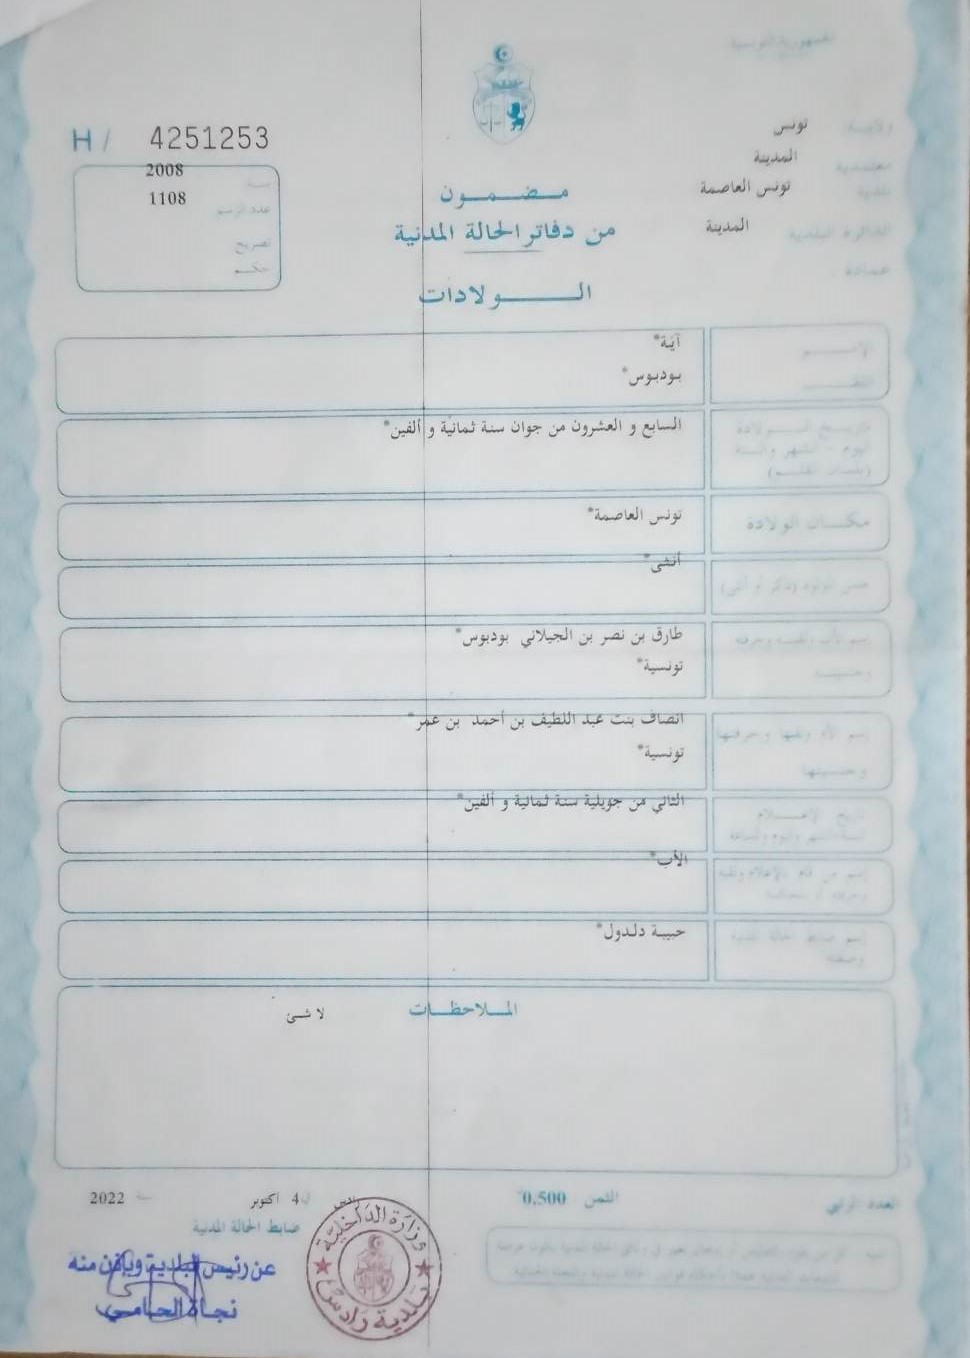 الجمهورية التونسية
H / 4251253
ولاية تونس
معتمدية المدينة
بلدية تونس العاصمة
الدائرة البلدية المدينة
عمادة
سنة 2008
عدد الرسم 1108
تصريح
حكم
مضمون
من دفاتر الحالة المدنية
الولادات
الإسم آية*
اللقب بودبوس*
تاريخ الولادة السابع و العشرون من جوان سنة ثمانية و ألفين*
اليوم - الشهر والسنة
(بلسان القلم)
مكان الولادة تونس العاصمة*
جنس المولود (ذكر أو أنثى) أنثى*
إسم الأب ولقبه وحرفته طارق بن نصر بن الجيلاني بودبوس*
وجنسيته تونسية*
إسم الأم ولقبها وحرفتها انصاف بنت عبد اللطيف بن أحمد بن عمر*
وجنسيتها تونسية*
تاريخ الإعلام الثاني من جويلية سنة ثمانية و ألفين*
الأب*
إسم ضابط الحالة المدنية حبيبة دلدول*
وصفته
الملاحظات
لا شئ
العدد الرتبي
الثمن 0.500
4 اكتوبر سنة 2022
ضابط الحالة المدنية
عن رئيس البلدية وبإذن منه
نجاة الحامي
وزارة الداخلية
بلدية رادس